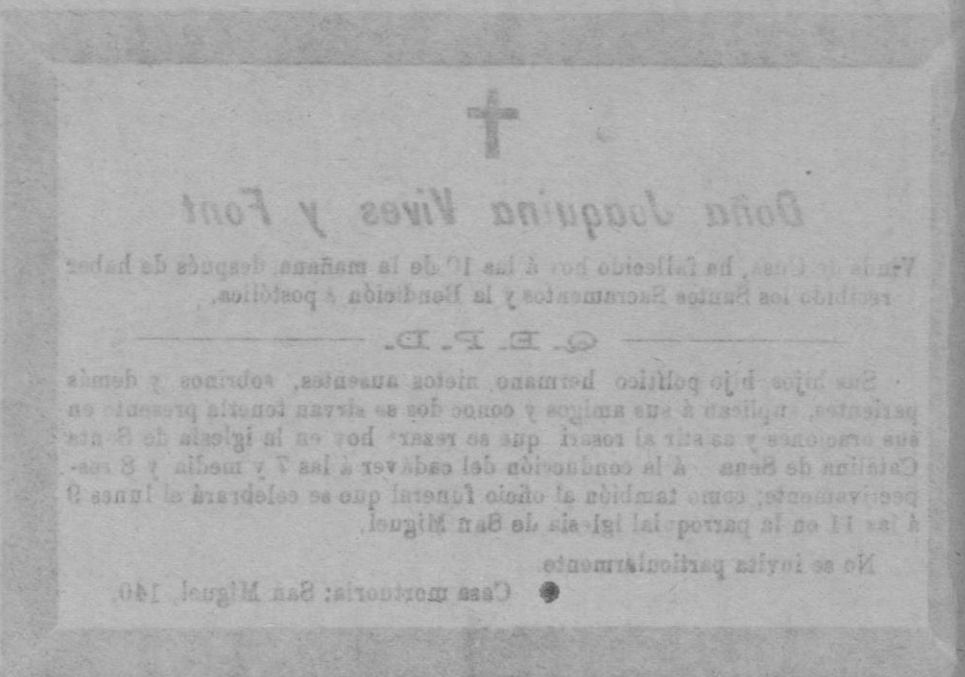 Doña Joaquina Vives y Font
Viuda de Cusa, ha fallecido hoy á las 10 de la mañana, después de haber
recibido los Santos Sacramentos y la Bendición Apostólica.
Q. E. P. D.
Sus hijos hijo político hermano nietos ausentes, sobrinos y demás
parientes, suplican á sus amigos y conocidos se sirvan tenerla presente en
sus oraciones y asistir al rosario que se rezará hoy en la iglesia de Santa
Catalina de Sena á la conducción del cadáver á las 7 y media y 8 res-
pectivamente; como también al oficio funeral que se celebrará el lunes 9
á las 11 en la parroquial iglesia de San Miguel.
No se invita particularmente.
Casa mortuoria: San Miguel, 140.